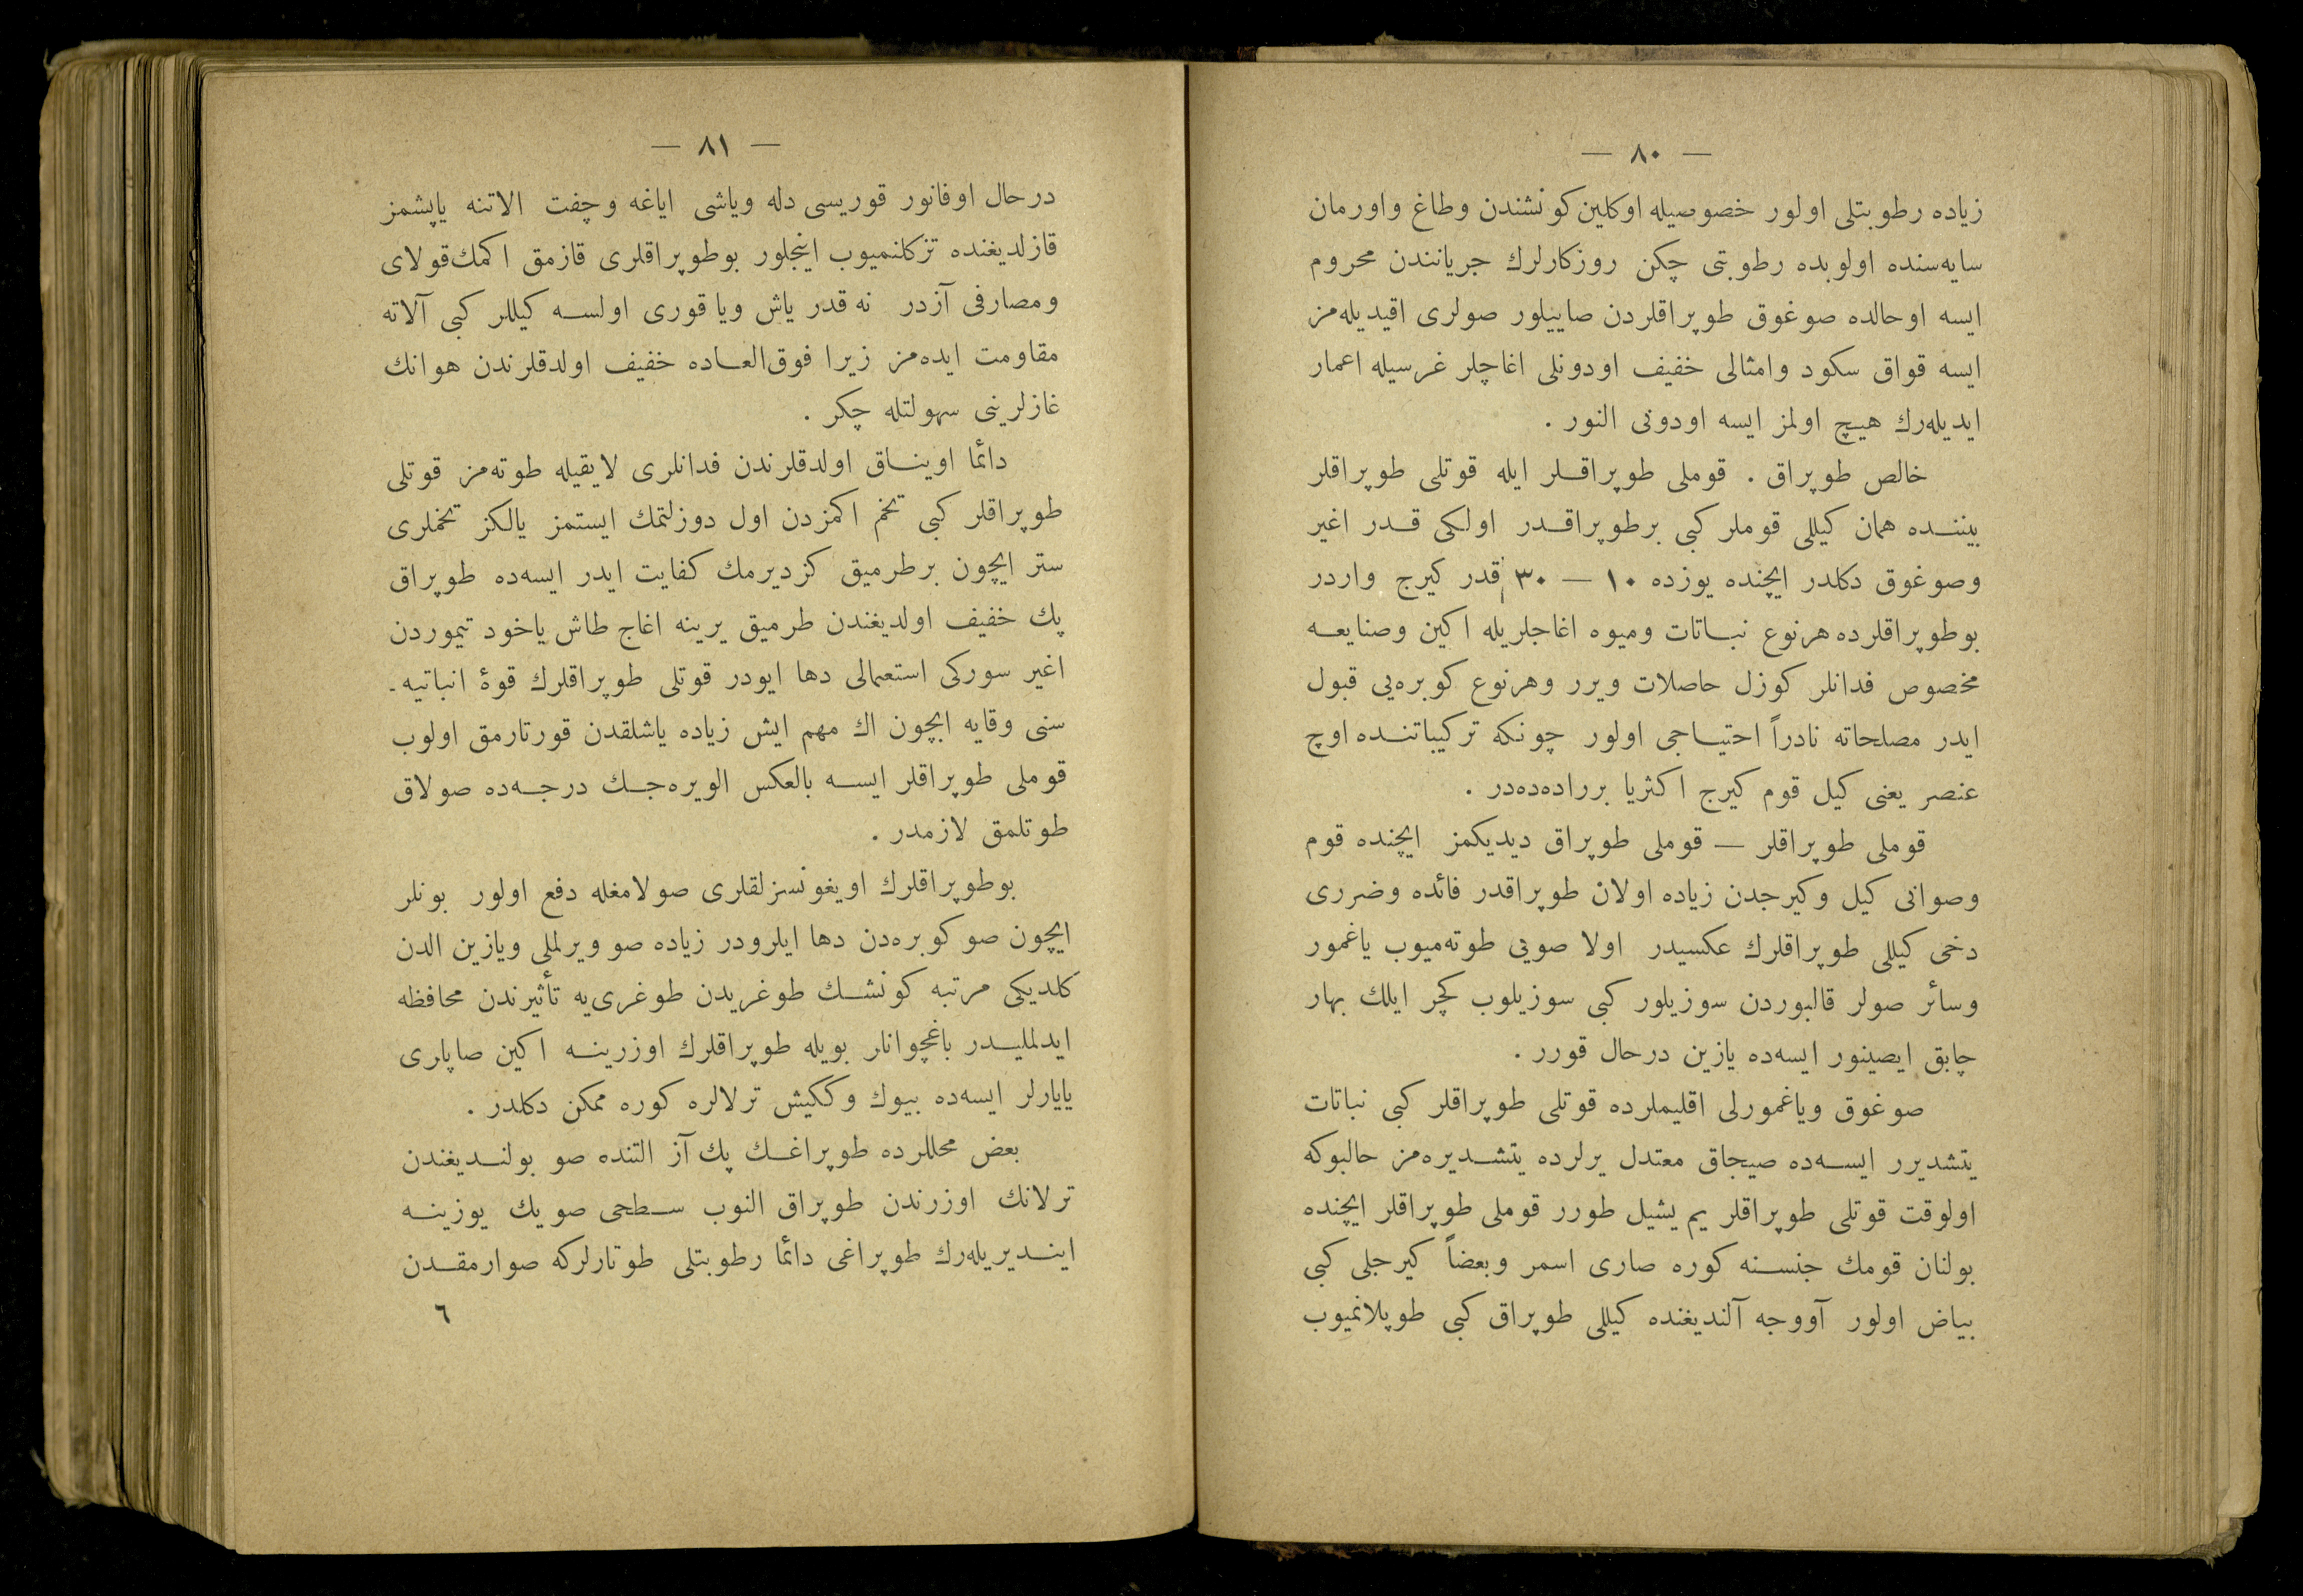 — ٨٠ —
زیاده رطوبتلی اولور خصوصیله اوکلین کونشندن وطاغ واورمان
سایه‌سنده اولوبده رطوبتی چکن روزکارلرك جریانندن محروم
ایسه اوحالده صوغوق طوپراقلردن صاییلور صولری اقیدیله‌مز
ایسه قواق سکود وامثالی خفیف اودونلی اغاچلر غرسیله اعمار
ایدیله‌رك هیچ اولمز ایسه اودونی النور .
خالص طوپراق . قوملی طوپراقلر ایله قوتلی طوپراقلر
بیننده همان کیللی قوملر کبی برطوپراقدر اولکی قدر اغیر
وصوغوق دکلدر ایچنده یوزده ١٠ — ٣٠ قدر کیرج واردر
بوطوپراقلرده هرنوع نباتات ومیوه اغاجلریله اکین وصنایعه
مخصوص فدانلر کوزل حاصلات ویرر وهرنوع کوبره‌یی قبول
ایدر مصلحاته نادراً احتیاجی اولور چونکه ترکیباتنده اوچ
عنصر یعنی کیل قوم کیرج اکثریا برراده‌ده‌در .
قوملی طوپراقلر — قوملی طوپراق دیدیکمز ایچنده قوم
وصوانی کیل وکیرجدن زیاده اولان طوپراقدر فائده وضرری
دخی کیللی طوپراقلرك عکسیدر اولا صویی طوته‌میوب یاغمور
وسائر صولر قالبوردن سوزیلور کبی سوزیلوب کچر ایلك بهار
چابق ایصینور ایسه‌ده یازین درحال قورر .
صوغوق ویاغمورلی اقلیملرده قوتلی طوپراقلر کبی نباتات
یتشدیرر ایسه‌ده صیجاق معتدل یرلرده یتشدیره‌مز حالبوکه
اولوقت قوتلی طوپراقلر یم یشیل طورر قوملی طوپراقلر ایچنده
بولنان قومك جنسنه کوره صاری اسمر وبعضاً کیرجلی کبی
بیاض اولور آووجه آلندیغنده کیللی طوپراق کبی طوپلانمیوب
— ٨١ —
درحال اوفانور قوریسی دله ویاشی ایاغه وچفت الاتنه یاپشمز
قازلدیغنده تزکلنمیوب اینجلور بوطوپراقلری قازمق اکمك قولای
ومصارفی آزدر نه قدر یاش ویا قوری اولسه کیللر کبی آلاته
مقاومت ایده‌مز زیرا فوق‌العاده خفیف اولدقلرندن هوانك
غازلرینی سهولتله چکر .
دائما اویناق اولدقلرندن فدانلری لایقیله طوته‌مز قوتلی
طوپراقلر کبی تخم اکمزدن اول دوزلتمك ایستمز یالکز تخملری
ستر ایچون برطرمیق کزدیرمك کفایت ایدر ایسه‌ده طوپراق
پك خفیف اولدیغندن طرمیق یرینه اغاج طاش یاخود تیموردن
اغیر سورکی استعمالی دها ایودر قوتلی طوپراقلرك قوهٔ انباتیه‌ـ
سنی وقایه ایچون اك مهم ایش زیاده یاشلقدن قورتارمق اولوب
قوملی طوپراقلر ایسه بالعکس الویره‌جك درجه‌ده صولاق
طوتلمق لازمدر .
بوطوپراقلرك اویغونسزلقلری صولامغله دفع اولور بونلر
ایچون صو کوبره‌دن دها ایلرودر زیاده صو ویرلملی ویازین الدن
کلدیکی مرتبه کونشك طوغریدن طوغری‌یه تأثیرندن محافظه
ایدلملیدر باغچوانلر بویله طوپراقلرك اوزرینه اکین صاپلری
یایارلر ایسه‌ده بیوك وککیش ترلالره کوره ممکن دکلدر .
بعض محللرده طوپراغك پك آز التنده صو بولندیغندن
ترلانك اوزرندن طوپراق النوب سطحی صویك یوزینه
ایندیریله‌رك طوپراغی دائما رطوبتلی طوتارلرکه صوارمقدن
٦